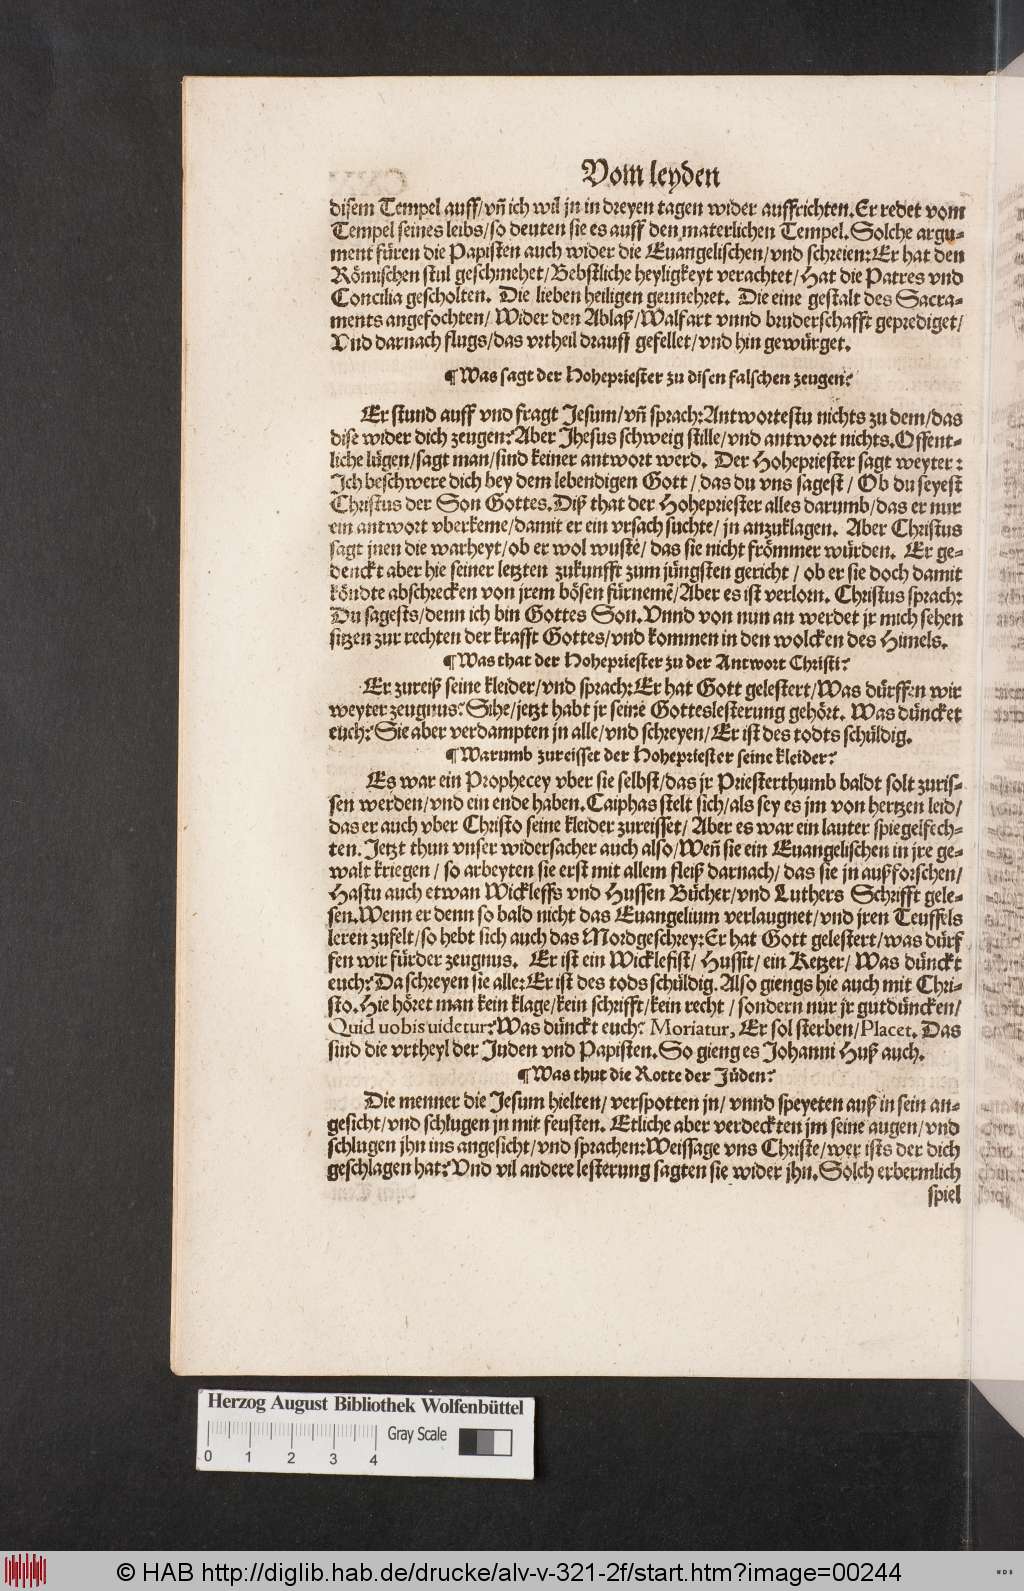 Vom leyden
disem Tempel auff/vñ ich wil jn in dreyen tagen wider auffrichten. Er redet vom
Tempel seines leibs/so deuten sie es auff den materlichen Tempel. Solche argu-
ment füren die Papisten auch wider die Euangelischen/vnd schreien: Er hat den
Römischen stul geschmehet/Bebstliche heyligkeyt verachtet/Hat die Patres vnd
Concilia gescholten. Die lieben heiligen geunehret. Die eine gestalt des Sacra-
ments angefochten/Wider den Ablaß/Walfart vnnd bruderschafft geprediget/
Vnd darnach flugs/das vrtheil drauff gefellet/vnd hin gewürget.
¶ Was sagt der Hohepriester zu disen falschen zeugen?
Er stund auff vnd fragt Jesum/vñ sprach: Antwortestu nichts zu dem/das
dise wider dich zeugen? Aber Jhesus schweig stille/vnd antwort nichts. Offent-
liche lügen/sagt man/sind keiner antwort werd. Der Hohepriester sagt weyter:
Ich beschwere dich bey dem lebendigen Gott/das du vns sagest/Ob du seyest
Christus der Son Gottes. Diß that der Hohepriester alles darumb/das er nur
ein antwort vberkeme/damit er ein vrsach suchte/jn anzuklagen. Aber Christus
sagt jnen die warheyt/ob er wol wuste/das sie nicht frömmer würden. Er ge-
denckt aber hie seiner letzten zukunfft zum jüngsten gericht/ob er sie doch damit
köndte abschrecken von jrem bösen fürnemẽ/Aber es ist verlorn. Christus sprach:
Du sagests/denn ich bin Gottes Son. Vnnd von nun an werdet jr mich sehen
sitzen zur rechten der krafft Gottes/vnd kommen in den wolcken des Himels.
¶ Was that der Hohepriester zu der Antwort Christi?
Er zureiß seine kleider/vnd sprach: Er hat Gott gelestert/Was dürffen wir
weyter zeugnus? Sihe/jetzt habt jr seine Gotteslesterung gehört. Was düncket
euch? Sie aber verdampten jn alle/vnd schreyen/Er ist des todts schüldig.
¶ Warumb zureisset der Hohepriester seine kleider?
Es war ein Prophecey vber sie selbst/das jr Priesterthumb baldt solt zuris-
sen werden/vnd ein ende haben. Caiphas stelt sich/als sey es jm von hertzen leid/
das er auch vber Christo seine kleider zureisset/Aber es war ein lauter spiegelfech-
ten. Jetzt thun vnser widersacher auch also/Weñ sie ein Euangelischen in jre ge-
walt kriegen/so arbeyten sie erst mit allem fleiß darnach/das sie jn außforschen/
Hastu auch etwan Wickleffs vnd Hussen Bücher/vnd Luthers Schrifft gele-
sen. Wenn er denn so bald nicht das Euangelium verlaugnet/vnd jren Teuffels
leren zufelt/so hebt sich auch das Mordgeschrey: Er hat Gott gelestert/was dürf
fen wir fürder zeugnus. Er ist ein Wicklefist/Hussit/ein Ketzer/Was dünckt
euch? Da schreyen sie alle: Er ist des tods schüldig. Also giengs hie auch mit Chri-
sto. Hie höret man kein klage/kein schrifft/kein recht/sondern nur jr gutdüncken/
Quid uobis uidetur? Was dünckt euch? Moriatur, Er sol sterben/Placet. Das
sind die vrtheyl der Juden vnd Papisten. So gieng es Johanni Huß auch.
¶ Was thut die Rotte der Jüden?
Die menner die Jesum hielten/verspotten jn/vnnd speyeten auß in sein an-
gesicht/vnd schlugen jn mit feusten. Etliche aber verdeckten jm seine augen/vnd
schlugen jhn ins angesicht/vnd sprachen: Weissage vns Christe/wer ists der dich
geschlagen hat? Vnd vil andere lesterung sagten sie wider jhn. Solch erbermlich
spiel
Herzog August Bibliothek Wolfenbüttel
Gray Scale
0 1 2 3 4
© HAB http://diglib.hab.de/drucke/alv-v-321-2f/start.htm?image=00244